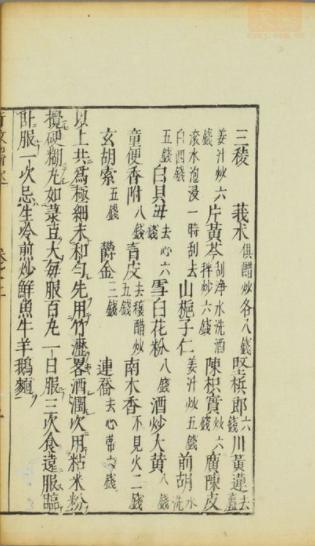 三稜 莪朮俱醋炒各八錢 堅梹郎六錢 川黃連去蘆
姜汁炒六錢 片黃芩刮淨水洗酒拌炒六錢 陳枳實炒六錢 廣陳皮
滾水泡浸一時刮去白四錢 山梔子仁姜汁炒五錢 前胡水洗
五錢 白貝母去心六錢 雪白花粉八錢 酒炒大黃八錢
童便香附八錢 青皮去穰醋炒五錢 南木香不見火二錢
玄胡索五錢 欝金三錢 連喬去心蒂六錢
以上共為極細末和勻先用竹瀝畧酒潤次用粘米粉
攪硬糊丸如菉豆大每服百丸一日服三次食遠服臨
卧服一次忌生冷煎炒鮮魚牛羊鵝麵